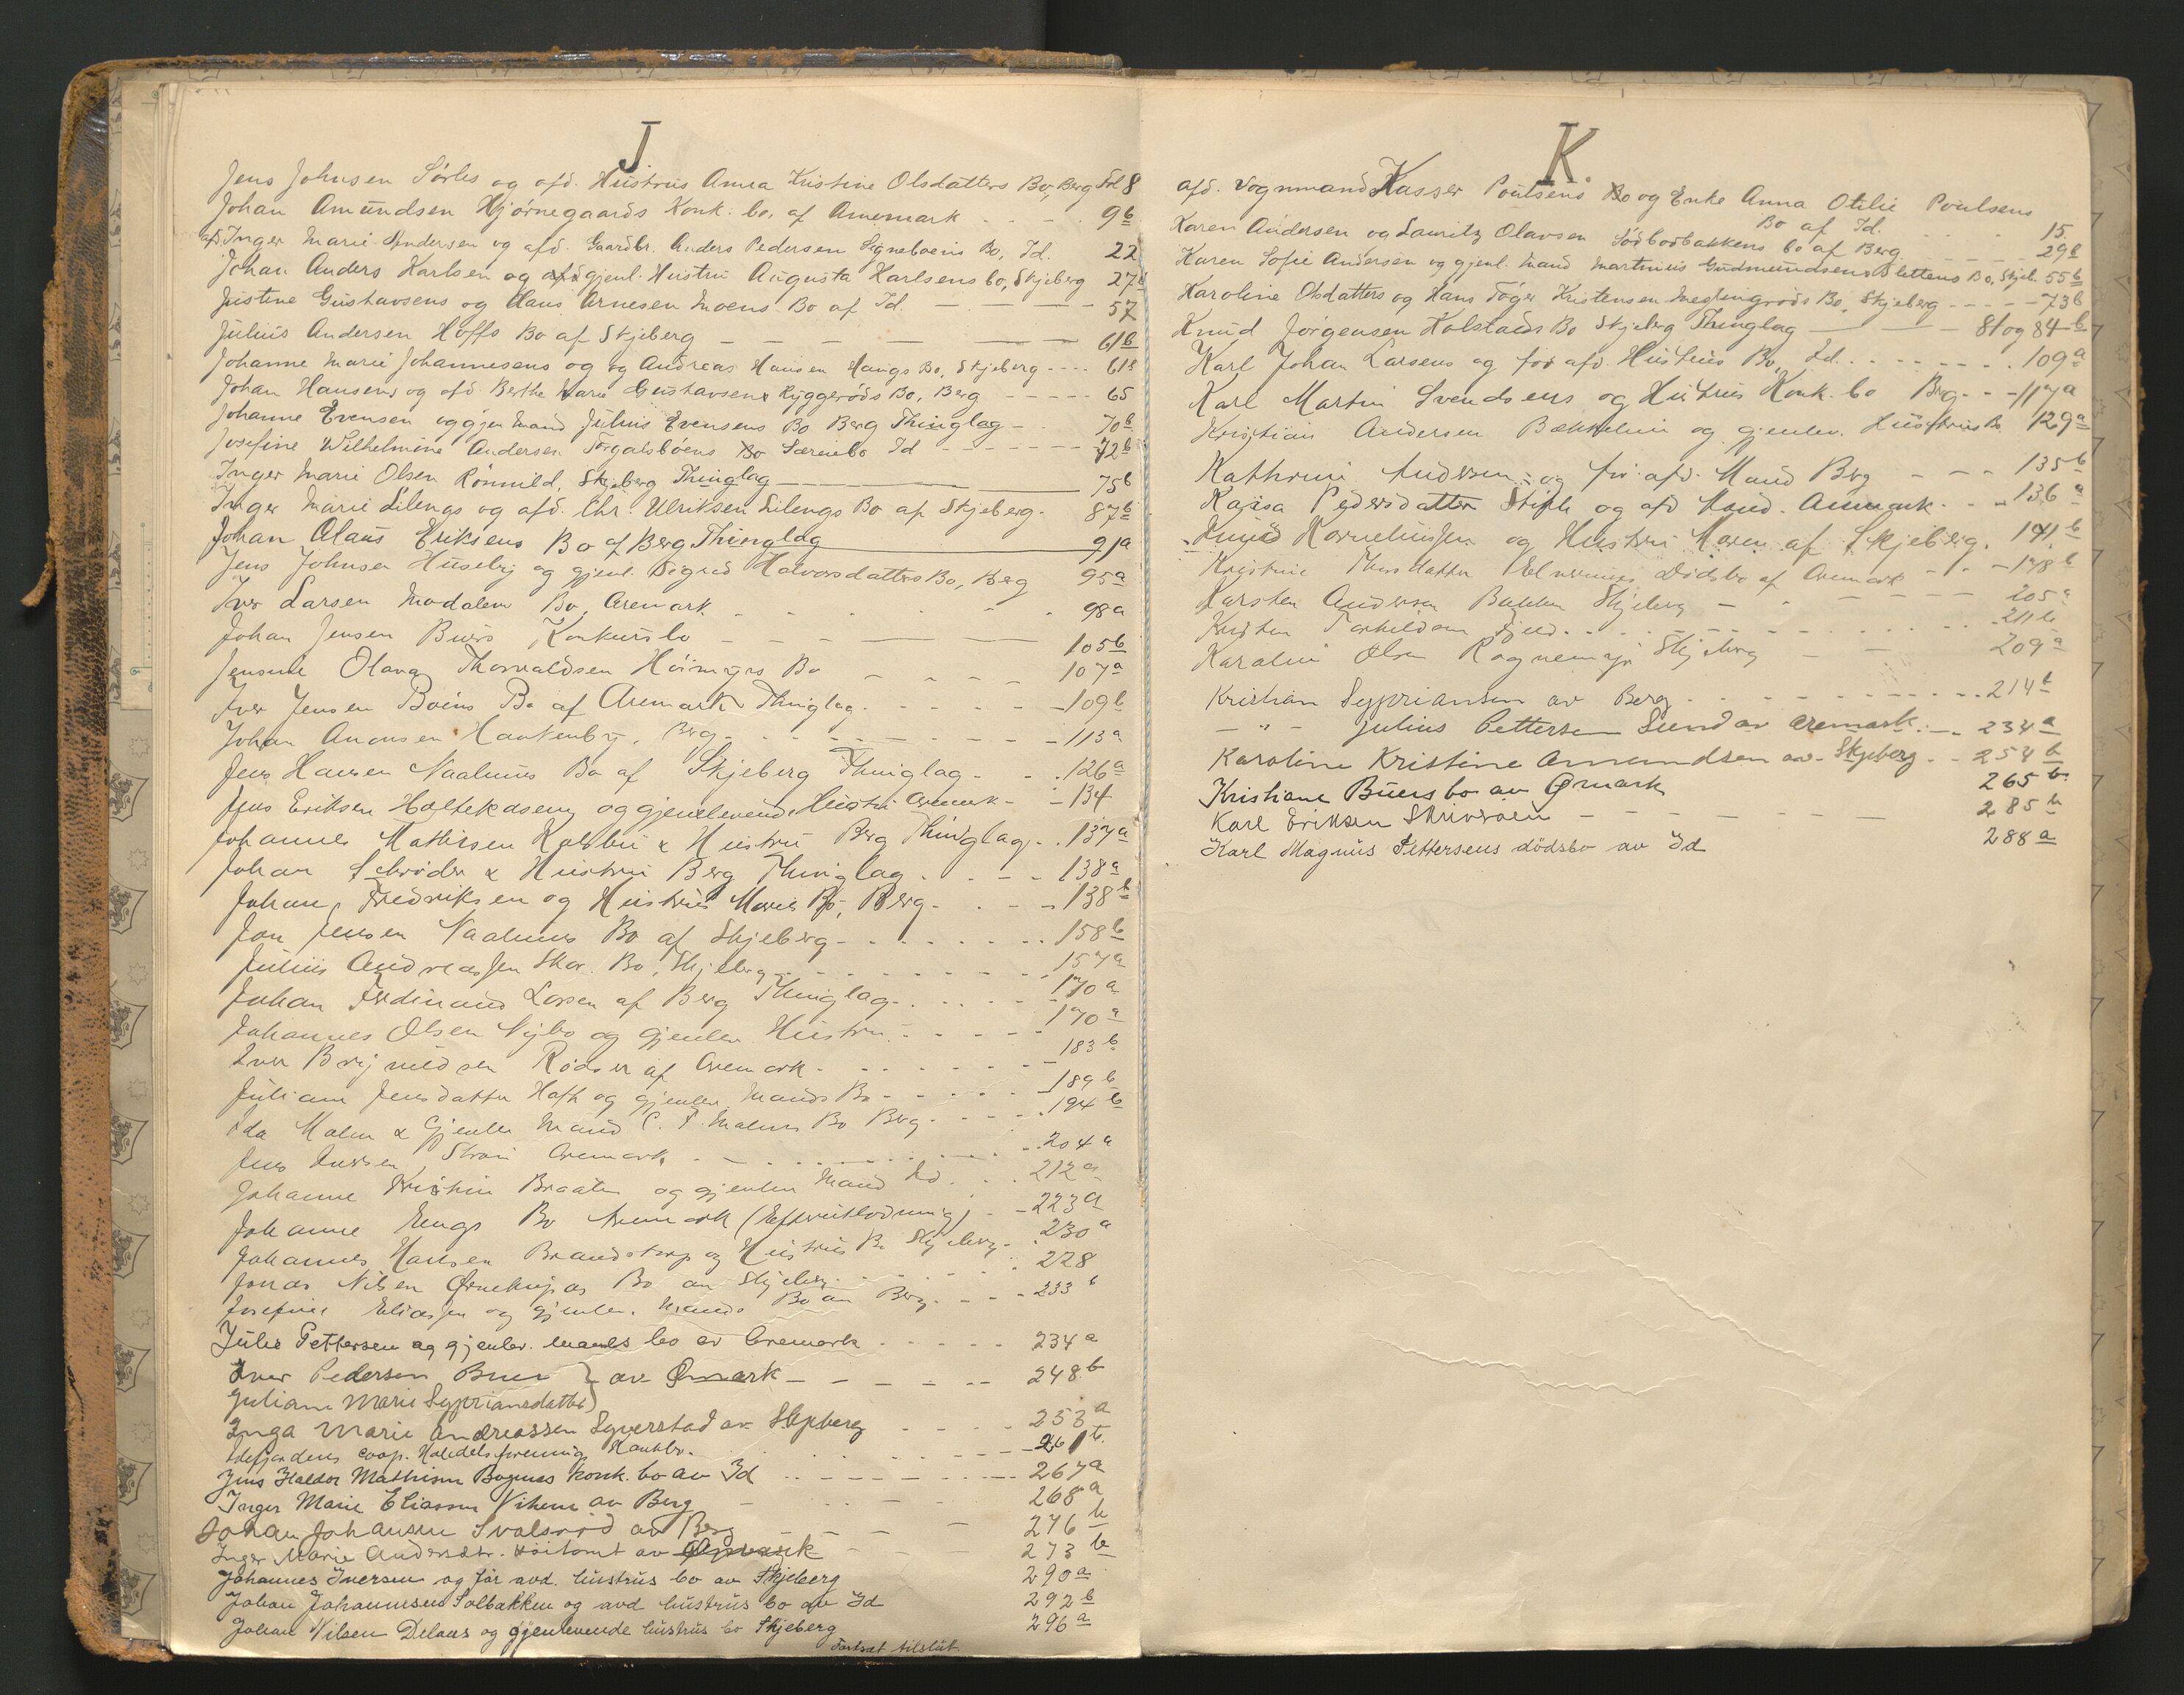 J
Jens Johnsen Sørlis og afd. Hustrus Anna Kristine Olsdatters Bo, Berg Fol 8
Johan Amundsen Hjørnegaards Konk. bo, af Aremark - - - 9b
afd. Inger Marie Andersen og afd. Gaardbr. Anders Pedersen Signeboens Bo, Id. 22
Johan Anders Karlsen og gjenl. Hustru Augusta Karlsens bo, Skjeberg 27b
Justine Gustavsens og Hans Arnesen Moens Bo af Id. - - - 57
Julius Andersen Hoffs Bo af Skjeberg - - - 61b
Johanne Marie Johannesens og og Andreas Hansen Haugs Bo, Skjeberg - - - 61b
Johan Hansens og afd. Berthe Marie Gustavsens Ryggerøds Bo, Berg - - - 65
Johanne Evensen og gjen Mand Julius Evensens Bo Berg Thinglag - 70b
Josefine Wilhelmine Andersen Torgalsbøens Bo Særeiebo Id - - - 72b
Inger Marie Olsen Rønnild, Skjeberg Thinglag - - - 75b
Inger Marie Lilengs og afd. Chr. Ulriksen Lilengs Bo af Skjeberg - 87b
Johan Olaus Eriksens Bo af Berg Thinglag 91a
Jens Johnsen Huseby og gjenl. Sigrid Halvorsdatters Bo, Berg 95a
Iver Larsen Modalens Bo, Aremark - - - 98a
Johan Jensen Buers Konkursbo - - - 105b
Jensine Olava Thorvaldsen Höimyrs Bo - - - 107a
Iver Jensen Boins Bo af Aremark Thinglag - - - 109b
Johan Anonsen Hankenby, Berg - - - 113a
Jens Hansen Naalums Bo af Skjeberg Thinglag - - 126a
Jens Eriksen Holtekasen og gjenlevende Hustru Aremark - - 134
Johannes Mathisen Kalsbu & Hustru Berg Thinglag - 137a
Johan Schrøder & Hustru Berg Thinglag - - - 138a
Johan Fredriksen og Hustrus Maries Bo, Berg - - - 138b
Jon Jensen Naalums Bo af Skjeberg - - - 158b
Julius Andreassen Skar. Bo, Skjeberg - - - 157a
Johan Ferdinand Larsen af Berg Thinglag - - - 170a
Johannes Olsen Nybo og gjenlev. Hustru - - - 170a
Iver Brynildsen Rødser af Aremark - - - 183b
Juliane Jensdatter Hafk og gjenlev. Mands Bo - - - 189b
Ida Malm & Gjenlev Mand C. F. Malms Bo Berg - - - 194b
Jens Iversen Aremark - - - 204a
Johanne Kristin Braaten og gjenlev Mand Id - - - 212a
Johanne Engs Bo Aremark (Efterutlodning) - - 223a
Johannes Hansen Brandstorp og Hustrus Bo Skjeberg - 230a
Jonas Nilsen Bo av Skjeberg - - - 228
Josefine Eliassen og gjenlev. Mands Bo av Berg - - - 233b
Julie Pettersen og gjenlev. mands bo av Aremark - - - 234a
Iver Pedersen Buer } av Ømark - - - 248b
Juliane Marie Sypriansdatter }
Inga Marie Andreassen Syverstad av Skjeberg - - - 253a
Idefjordens coop. Handelsforening Konkbo. - - - 261b
Jens Haldor Mathisen Bognes konk. bo av Id - - - 267a
Inger Marie Eliassen Viken av Berg - - - 268a
Johan Johansen Svalsrød av Berg - - - 276b
Inger Marie Andersdtr. Høitomt av Ømark - - - 273b
Johannes Iversen og før avd. hustrus bo av Skjeberg 290a
Johan Johannesen Solbakken og avd hustrus bo av Id 292b
Johan Nilsen Delaas og gjenlevende hustrus bo Skjeberg 296a
Fortsat tilslut.
K.
afd. Vognmand Kasser Poulsens Bo og Enke Anna Otilie Poulsens
Bo af Id. - - - 15.
Karen Andersen og Lauritz Olavsen Södbodbakkens bo af Berg - - - 29b
Karen Sofie Andersen og gjenl. Mand Martinius Gudmundsens Slettens Bo, Skjeb. 55b
Karoline Olsdatters og Hans Töger Kristensen Meslingrøds Bo, Skjeberg - - - 73b
Knud Jørgensen Holstads Bo Skjeberg Thinglag - - - 81 og 84b
Karl Johan Larsens og før afd. Hustrus Bo, Id. - - - 109a
Karl Martin Svendsens og Hustrus Konk. bo Berg - - - 117a
Kristian Andersen Bækkelun og gjenlev. Hustrus Bo 129a
Kathrine Andersen og før afd. Mand Berg - - - 135b
Kajsa Pedersdatter og afd Mand. Aremark - - 136a
Knud Korneliussen og Hustru Maren af Skjeberg. 141b
Kristine Thorsdatter Elvernes Dødsbo af Aremark - - - 178b
Karsten Andersen Bakken Skjeberg - - - 205a
Kristen Torkildsen Fjeld - - - 211b
Karoline Olsen Rognemyr Skjeberg - - 209a
Kristian Syprianson av Berg - - - 214b
- " - Julius Pettersen Sund av Aremark - - 234a
Karoline Kristine Amundsen av Skjeberg - - 254b
Kristiane Buers bo av Ømark 265b
Karl Eriksen Skriveroen - - - 285b
Karl Magnus Pettersens dödsbo av Id 288a